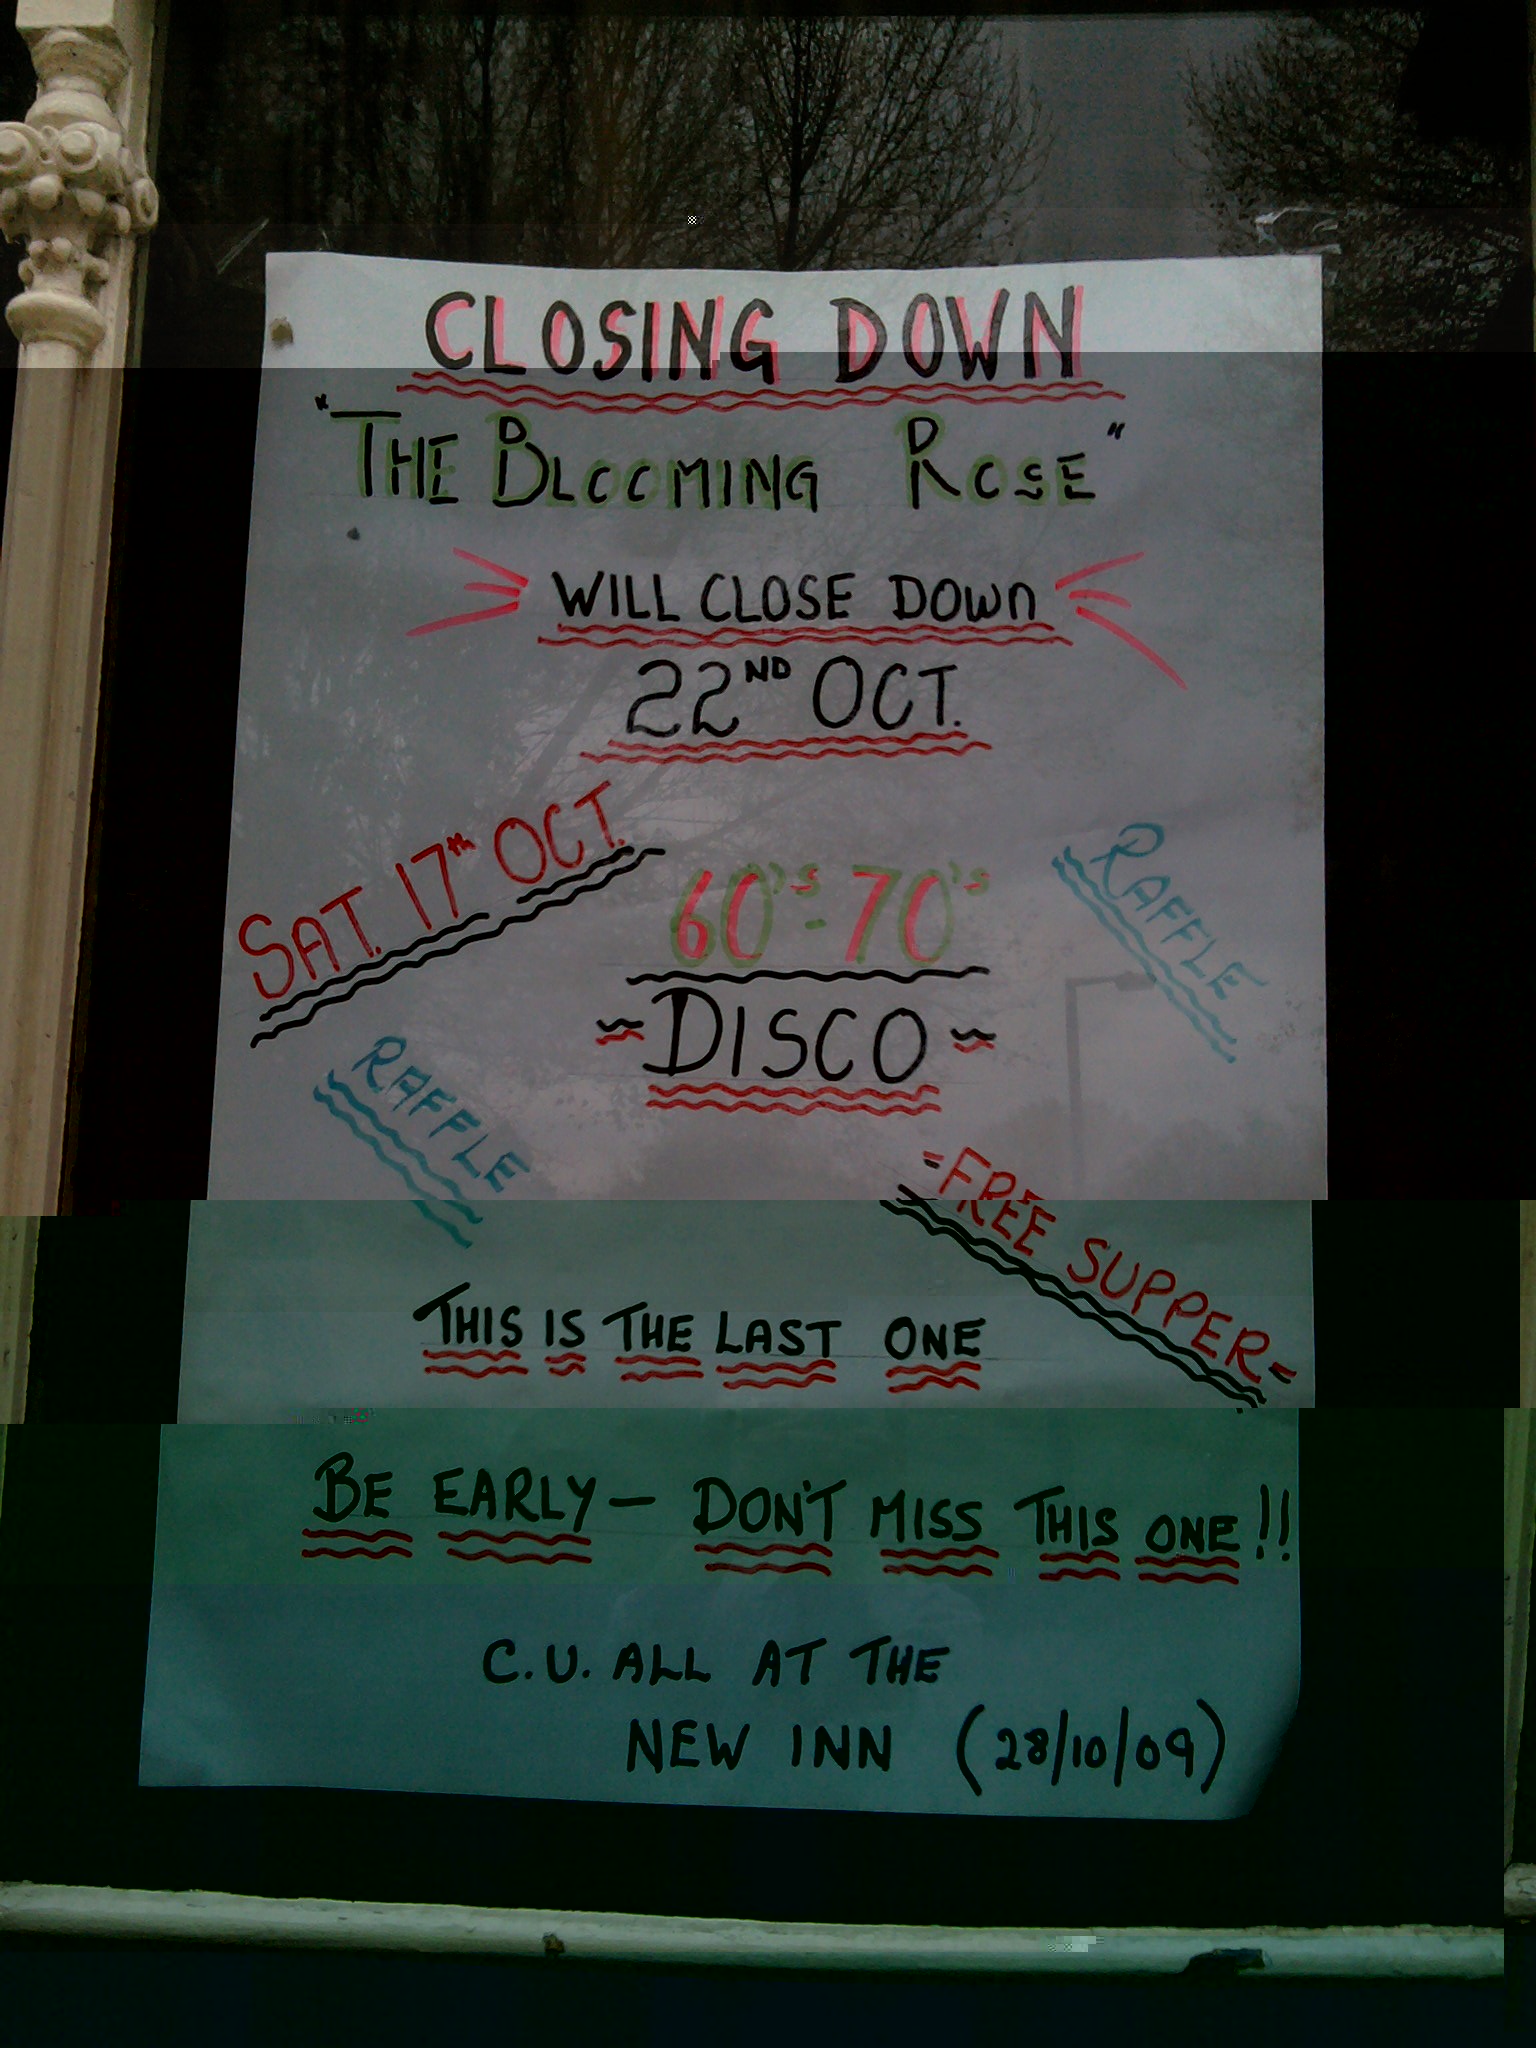 CLOSING DOWN
"THE BLOOMING ROSE"
WILL CLOSE DOWN
22ND OCT.
SAT. 17th OCT.
60's-70's
RAFFLE
~DISCO~
RAFFLE
-FREE SUPPER-
THIS IS THE LAST ONE
BE EARLY — DON'T MISS THIS ONE!!
C.U. ALL AT THE
NEW INN (28/10/09)